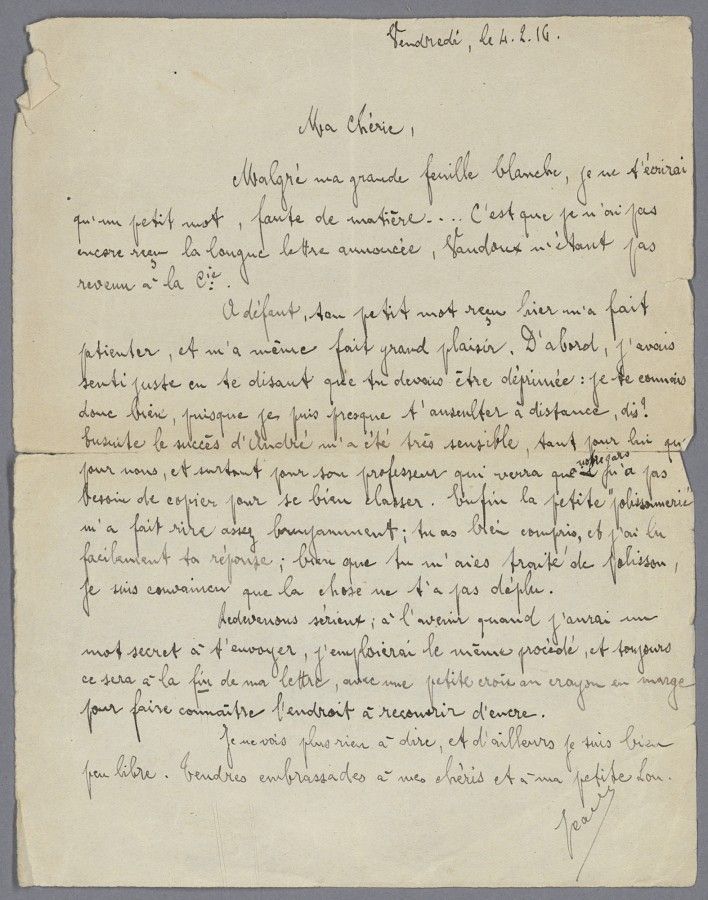 Vendredi, le 4.2.16.
Ma Chérie,
Malgré ma grande feuille blanche, je ne t'écrirai
qu'un petit mot, faute de matière.... C'est que je n'ai pas
encore reçu la longue lettre annoncée, Vandoux n'étant pas
revenu à la Cie.
A défaut, ton petit mot reçu hier m'a fait
patienter, et m'a même fait grand plaisir. D'abord, j'avais
senti juste en te disant que tu devais être déprimée : je te connais
donc bien, puisque je puis presque t'ausculter à distance, dis?
Ensuite le succès d'André m'a été très sensible, tant pour lui que
pour nous, et surtout pour son professeur qui verra que notre gars n'a pas
besoin de copier pour se bien classer. Enfin la petite "polissonnerie"
m'a fait rire assez bruyamment ; tu as bien compris, et j'ai lu
facilement ta réponse ; bien que tu m'aies traité de polisson,
je suis convaincu que la chose ne t'a pas déplu.
Redevenons sérieux ; à l'avenir quand j'aurai un
mot secret à t'envoyer, j'emploierai le même procédé, et toujours
ce sera à la fin de ma lettre, avec une petite croix au crayon en marge
pour faire connaître l'endroit à recouvrir d'encre.
Je ne vois plus rien à dire, et d'ailleurs je suis bien
peu libre. Tendres embrassades à mes chéris et à ma petite Lou.